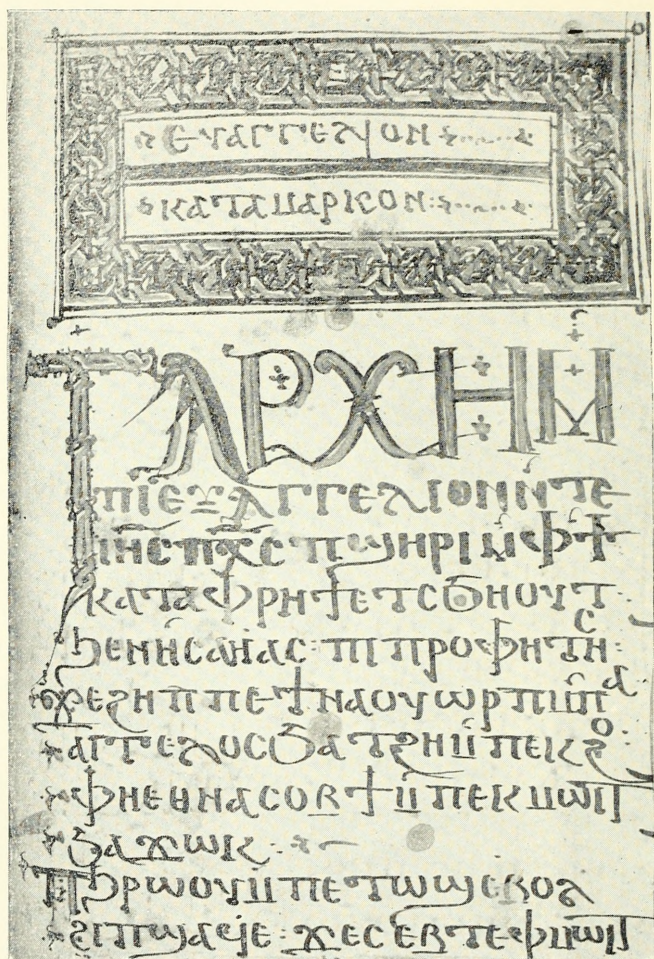 ⲉⲩⲁⲅⲅⲉⲗⲓⲟⲛ
ⲕⲁⲧⲁ ⲙⲁⲣⲕⲟⲛ:
ⲧⲁⲣⲭⲏ ⲙ
ⲡⲓⲉⲩⲁⲅⲅⲉⲗⲓⲟⲛ ⲛ̀ⲧⲉ
ⲓⲏ̅ⲥ̅ ⲡⲭ̅ⲥ̅ ⲡϣⲏⲣⲓ ⲙ̀ⲫϯ
ⲕⲁⲧⲁ ⲫⲣⲏϯ ⲉⲧⲥϧⲏⲟⲩⲧ
ϧⲉⲛ ⲏⲥⲁⲏⲁⲥ: ⲡⲓⲡⲣⲟⲫⲏⲧⲏⲥ:
ϫⲉ ϩⲏⲡⲡⲉ ϯⲛⲁⲟⲩⲱⲣⲡ ⲙ̀ⲡⲁ
ⲁⲅⲅⲉⲗⲟⲥ ϧⲁⲧϩⲏ ⲙⲡⲉⲕϩⲟ:
ⲫⲏⲉⲑⲛⲁⲥⲟⲃϯ ⲙⲡⲉⲕⲙⲱⲓⲧ
ϧⲁϫⲱⲕ:
ⲡϧⲣⲱⲟⲩ ⲙⲡⲉⲧⲱϣ ⲉⲃⲟⲗ
ϩⲓ ⲡϣⲁϥⲉ: ϫⲉ ⲥⲉⲃⲧⲉ ⲫⲙⲱⲓⲧ